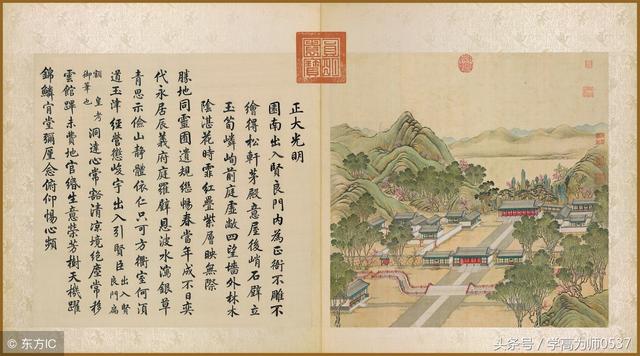 正大光明
園南出入賢良門內為正衙不雕不
繪得松軒茅殿意屋後峭石壁立
玉筍嶙峋前庭虛敞四望墻外林木
陰湛花時霏紅疊紫層映無際
勝地同靈囿遺規繼暢春當年成不日奕
代永居辰義府庭羅壁恩波水瀉銀草
青思示儉山靜體依仁只可方衢室何須
道玉津經營懲峻宇出入引賢臣出入賢良門扁
額皇考御筆也洞達心常豁清凉境絕塵常移
雲館蹕未費地官緡生意榮芳樹天機躍
錦鱗肯堂彌厪念俯仰惕心頻
© 东方IC
头条号 / 学高为师0537